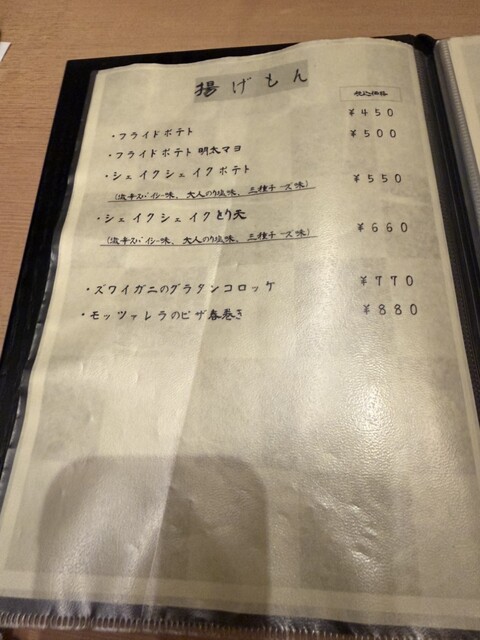 揚げもん
税込価格
・フライドポテト ¥450
・フライドポテト 明太マヨ ¥500
・シェイクシェイクポテト ¥550
(激辛スパイシー味、大人のり塩味、三種チーズ味)
・シェイクシェイクとり天 ¥660
(激辛スパイシー味、大人のり塩味、三種チーズ味)
・ズワイガニのグラタンコロッケ ¥770
・モッツァレラのピザ春巻き ¥880